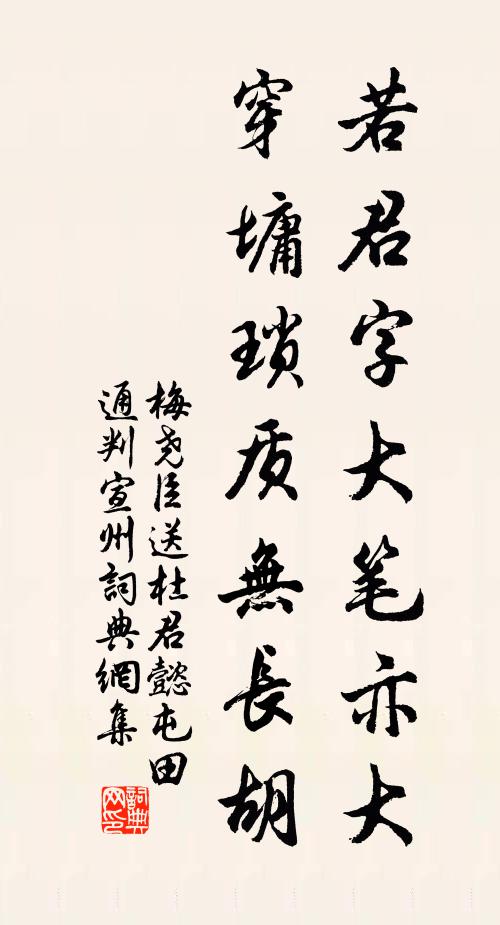 若君字大笔亦大
穿墉琐质無長胡
梅尧臣送杜君懿屯田
通判宣州詞典網集
詞典
网印